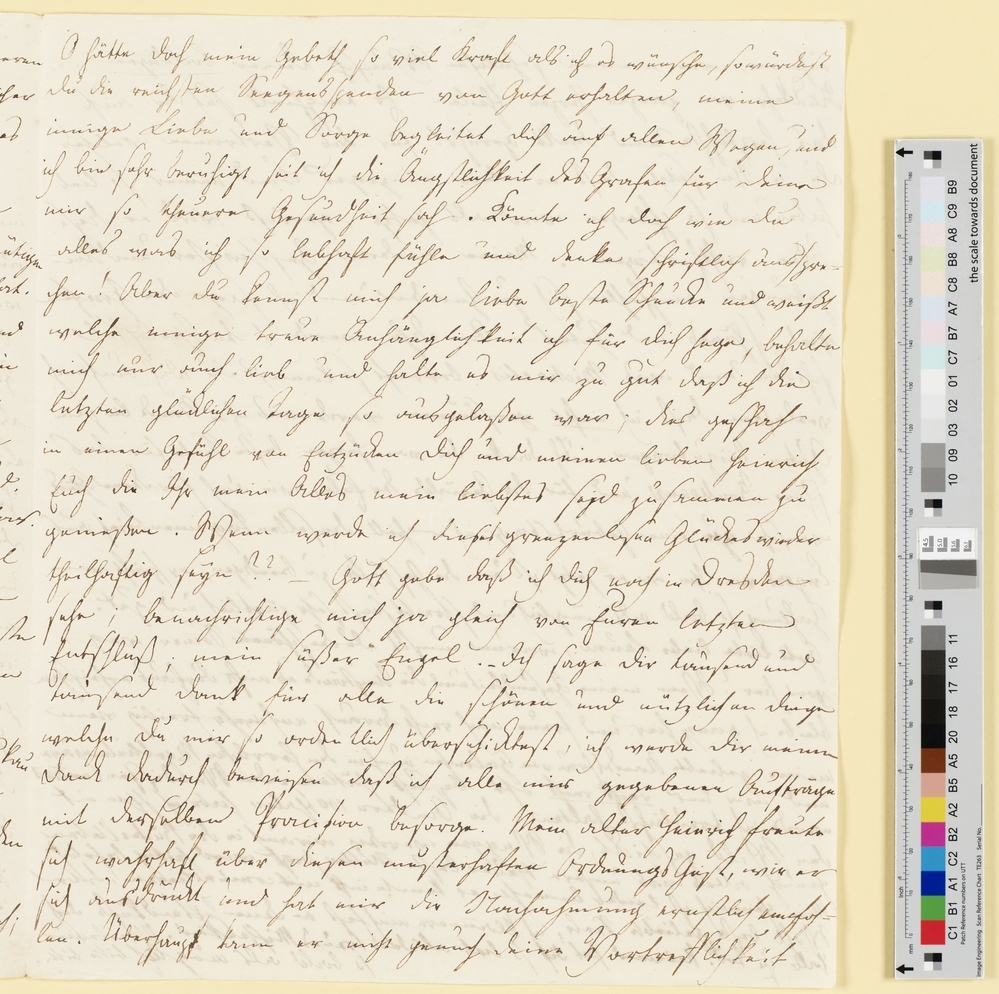 O hätte doch mein Gebeth so viel Kraft als ich es wünsche, so würdest
du die reichsten Seegensspenden von Gott erhalten, meine
innige Liebe und Sorge begleitet dich auf allen Wegen, und
ich bin sehr beruhigt seit ich die Ängstlichkeit des Grafen für deine
mir so theuere Gesundheit sah. Könnte ich doch wie du
alles was ich so lebhaft fühle und denke schriftlich ausspre=
chen! Aber du kennst mich ja liebe beste Schwester und weißt
welche innige treue Anhänglichkeit ich für dich hege, behalte
mich nur auch lieb und halte es mir zu gut daß ich die
letzten glücklichen Tage so ausgelaßen war; dies geschah
in einen Gefühl von Entzücken Dich und meinen lieben Heinrich
Euch die Ihr mein Alles mein liebstes seyd zusammen zu
genießen. Wenn werde ich dieses grenzenlosen Glückes wieder
theilhaftig seyn?? – Gott gebe daß ich Dich noch in Dresden
sehe; benachrichtige mich ja gleich von Euren letzten
Entschluß; mein süßer Engel. – Ich sage dir tausend und
tausend Dank für alle die schönen und nützlichen Dinge
welche du mir so ordentlich überschicktest, ich werde dir meinen
Dank dadurch beweisen daß ich alle mir gegebenen Aufträge
mit derselben Pracision besorge. Mein alter Heinrich freute
sich wahrhaft über diesen musterhaften Ordnungs Geist, wie er
sich ausdrückt und hat mir die Nachahmung ernstlich empfoh=
len. Überhaupt kann er nicht genuch deine Vortrefflichkeit
the scale towards document
C1 B1 A1 C2 B2 A2 B5 A5 20 18 17 16 11
10 09 03 02 01 C7 B7 A7 C8 B8 A8 C9 B9
Patch Reference numbers on UTT
Image Engineering Scan Reference Chart TE263 Serial No.
mm
inch